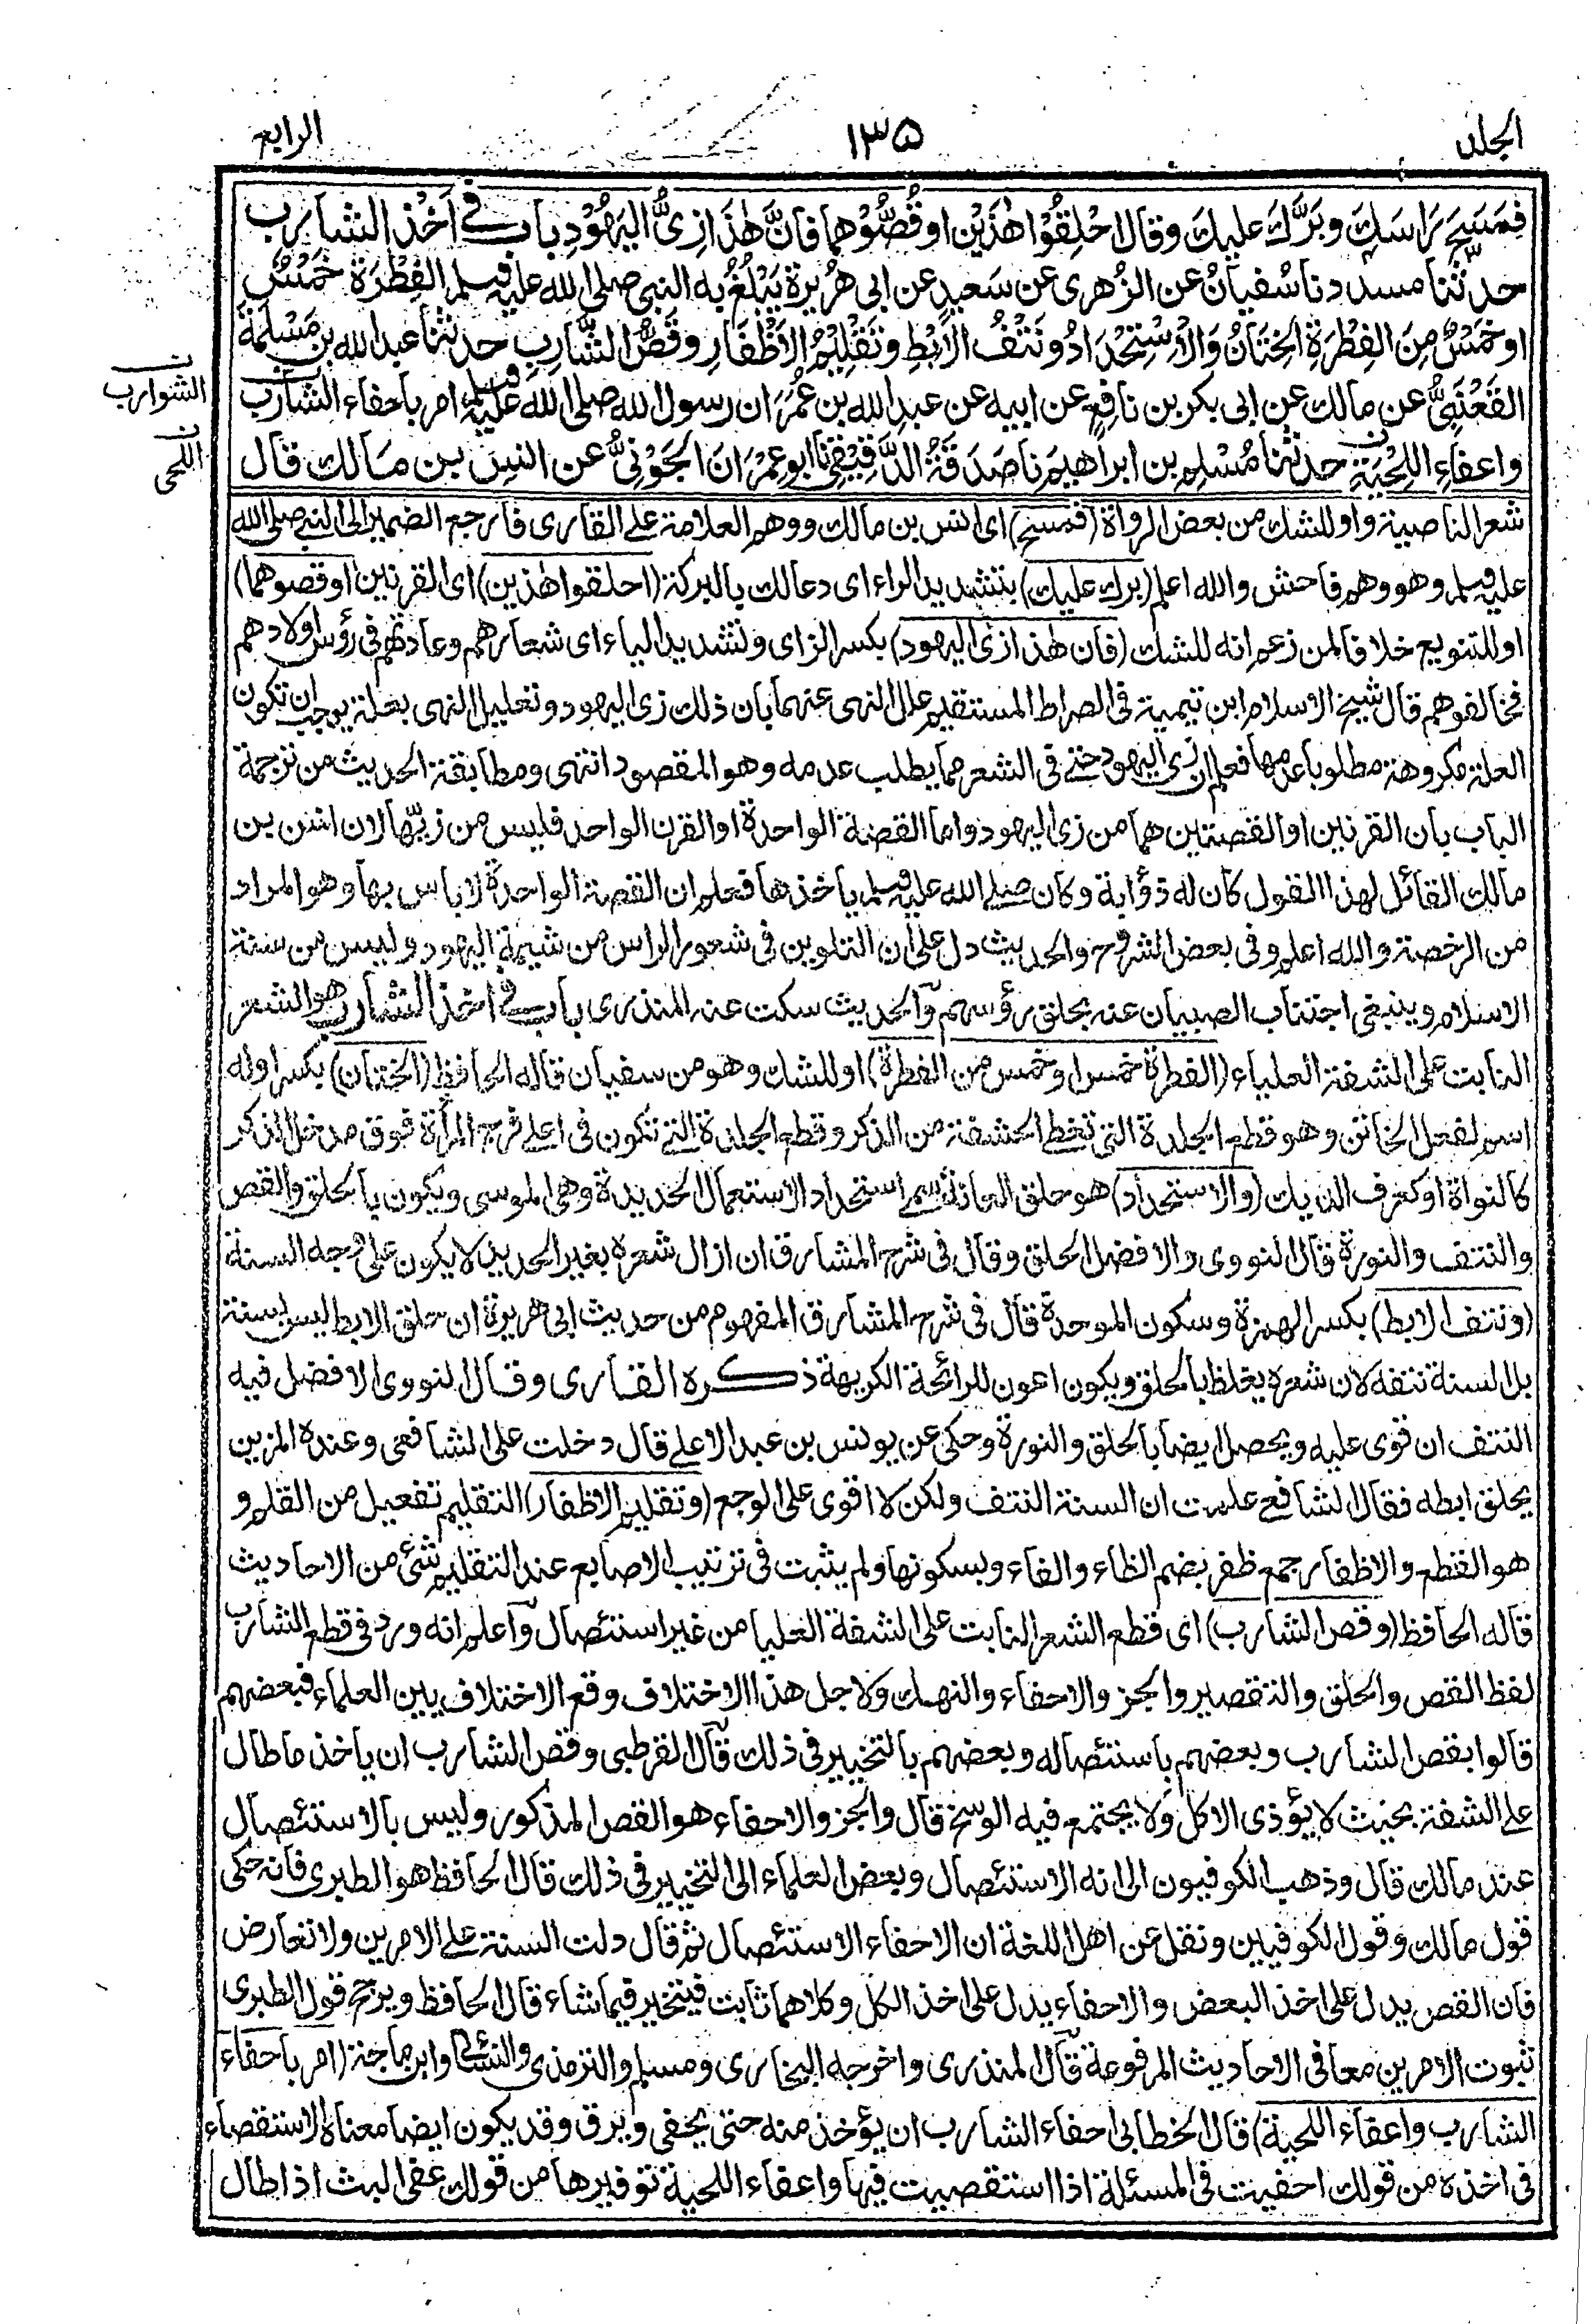 الجلد ١٣٥ الرابع
فمَسَحَ رَاسَكَ وبَرَّكَ عليك وقال احْلِقُوْا هٰذَيْنِ اوقُصُّوْهما فانَّ هٰذَا زِىُّ اليَهُوْدِ باب فے اَخْذِ الشارب
حدّثنا مسدد نا سُفيانُ عن الزُهرى عن سَعيدٍ عن ابى هُرَيرةَ يَبْلُغُ به النبى صلى الله عليه وسلم الفِطْرَةُ خَمْسٌ
اوخَمْسٌ مِنَ الفِطْرَةِ الخِتَانُ وَالْاِسْتِحْدَادُ ونَتْفُ الاَبْطِ وتَقْلِيْمُ الاَظْفَارِ وقَصُّ الشَّارِبِ حدثنا عبد الله بن مَسْلَمَةَ
القَعْنَبِىُّ عن مالك عن ابى بكر بن نافِعٍ عن ابيه عن عبدِ الله بن عُمَرَ ان رسول الله صلى الله عليه وسلم امر باحفاء الشارب
واعفاءِ اللِحْيَةِ حدثنا مُسْلِم بن ابراهيمَ نا صَدَقَةُ الدَّقِيْقِى نا ابو عِمْرَانَ الجَوْنِىُّ عن انس بن مَالك قال
الشوارب
اللحى
شعر الناصية واو للشك من بعض الرواة (فمسح) اى انس بن مالك ووهم العلامة على القارى فارجع الضمير الى النبى صلى الله
عليه وسلم وهو وهم فاحش والله اعلم (برك عليك) بتشديد الراء اى دعا لك بالبركة (احلقوا هذين) اى القرنين (اوقصوهما)
او للتنويع خلافا لمن زعم انه للشك (فان هذا زى اليهود) بكسر الزاى وتشديد الياء اى شعارهم وعادتهم فى رؤس اولادهم
فخالفوهم قال شيخ الاسلام ابن تيمية فى الصراط المستقيم علل النهى عنهما بان ذلك زى اليهود وتعليل النهى بعلة يوجب ان تكون
العلة مكروهة مطلوبا عدمها فعلم ان زى اليهود حتے فى الشعر مما يطلب عدمه وهو المقصود انتهى ومطابقة الحديث من ترجمة
الباب بان القرنين او القصتين هما من زى اليهود واما القصة الواحدة او القرن الواحد فليس من زيّها لان انس بن
مالك القائل لهذا القول كان له ذؤابة وكان صلے الله عليه وسلم ياخذها فعلم ان القصة الواحدة لا باس بها وهو المراد
من الرخصة والله اعلم وفى بعض الشروح والحديث دل على ان التلوين فى شعور الراس من شيمة اليهود وليس من سنة
الاسلام وينبغى اجتناب الصبيان عنه بحلق رؤسهم والحديث سكت عنه المنذرى باب فے اخذ الشارب هو الشعر
النابت على الشفة العلياء (الفطرة خمس او خمس من الفطرة) او للشك وهو من سفيان قاله الحافظ (الختان) بكسر اوله
اسم لفعل الخاتن وهو قطع الجلدة التى تغطى الحشفة من الذكر وقطع الجلدة التے تكون فى اعلے فرج المرأة فوق مدخل الذكر
كالنواة او كعرف الديك (والاستحداد) هو حلق العانة سمے استحدادا لاستعمال الحديدة وهى الموسى ويكون بالحلق والقص
والنتف والنورة قال النووى والافضل الحلق وقال فى شرح المشارق ان ازال شعره بغير الحديد لا يكون على وجه السنة
(ونتف الابط) بكسر الهمزة وسكون الموحدة قال فى شرح المشارق المفهوم من حديث ابى هريرة ان حلق الابط ليس بسنة
بل السنة نتفه لان شعره يغلظ بالحلق ويكون اعون للرائحة الكريهة ذكره القارى وقال النووى الافضل فيه
النتف ان قوى عليه ويحصل ايضا بالحلق والنورة وحكى عن يونس بن عبد الاعلے قال دخلت على الشافعى وعنده المزين
يحلق ابطه فقال الشافعے علمت ان السنة النتف ولكن لا اقوى على الوجع (وتقليم الاظفار) التقليم تفعيل من القلم و
هو القطع والاظفار جمع ظفر بضم الظاء والفاء وبسكونها ولم يثبت فى ترتيب الاصابع عند التقليم شئ من الاحاديث
قاله الحافظ (وقص الشارب) اى قطع الشعر النابت على الشفة العليا من غير استئصال واعلم انه ورد فى قطع الشارب
لفظ القص والحلق والتقصير والجز والاحفاء والنهك ولاجل هذا الاختلاف وقع الاختلاف بين العلماء فبعضهم
قالوا بقص الشارب وبعضهم باستئصاله وبعضهم بالتخيير فى ذلك قال القرطبى وقص الشارب ان ياخذ ما طال
علے الشفة بحيث لا يؤذى الاكل ولا يجتمع فيه الوسخ قال والجز والاحفاء هو القص المذكور وليس بالاستئصال
عند مالك قال وذهب الكوفيون الى انه الاستئصال وبعض العلماء الى التخيير فى ذلك قال الحافظ هو الطبرى فانه حكى
قول مالك وقول الكوفيين ونقل عن اهل اللغة ان الاحفاء الاستئصال ثم قال دلت السنة علے الامرين ولا تعارض
فان القص يدل على اخذ البعض والاحفاء يدل على اخذ الكل وكلاهما ثابت فيتخير فيما شاء قال الحافظ ويرجح قول الطبرى
ثبوت الامرين معا فى الاحاديث المرفوعة قال المنذرى واخرجه البخارى ومسلم والترمذى والنسائى وابن ماجة (امر باحفاء
الشارب واعفاء اللحية) قال الخطابى احفاء الشارب ان يؤخذ منه حتى يحفى ويرق وقد يكون ايضا معناه الاستقصاء
فى اخذه من قولك احفيت فى المسئلة اذا استقصيت فيها واعفاء اللحية توفيرها من قولك عفى البث اذا طال